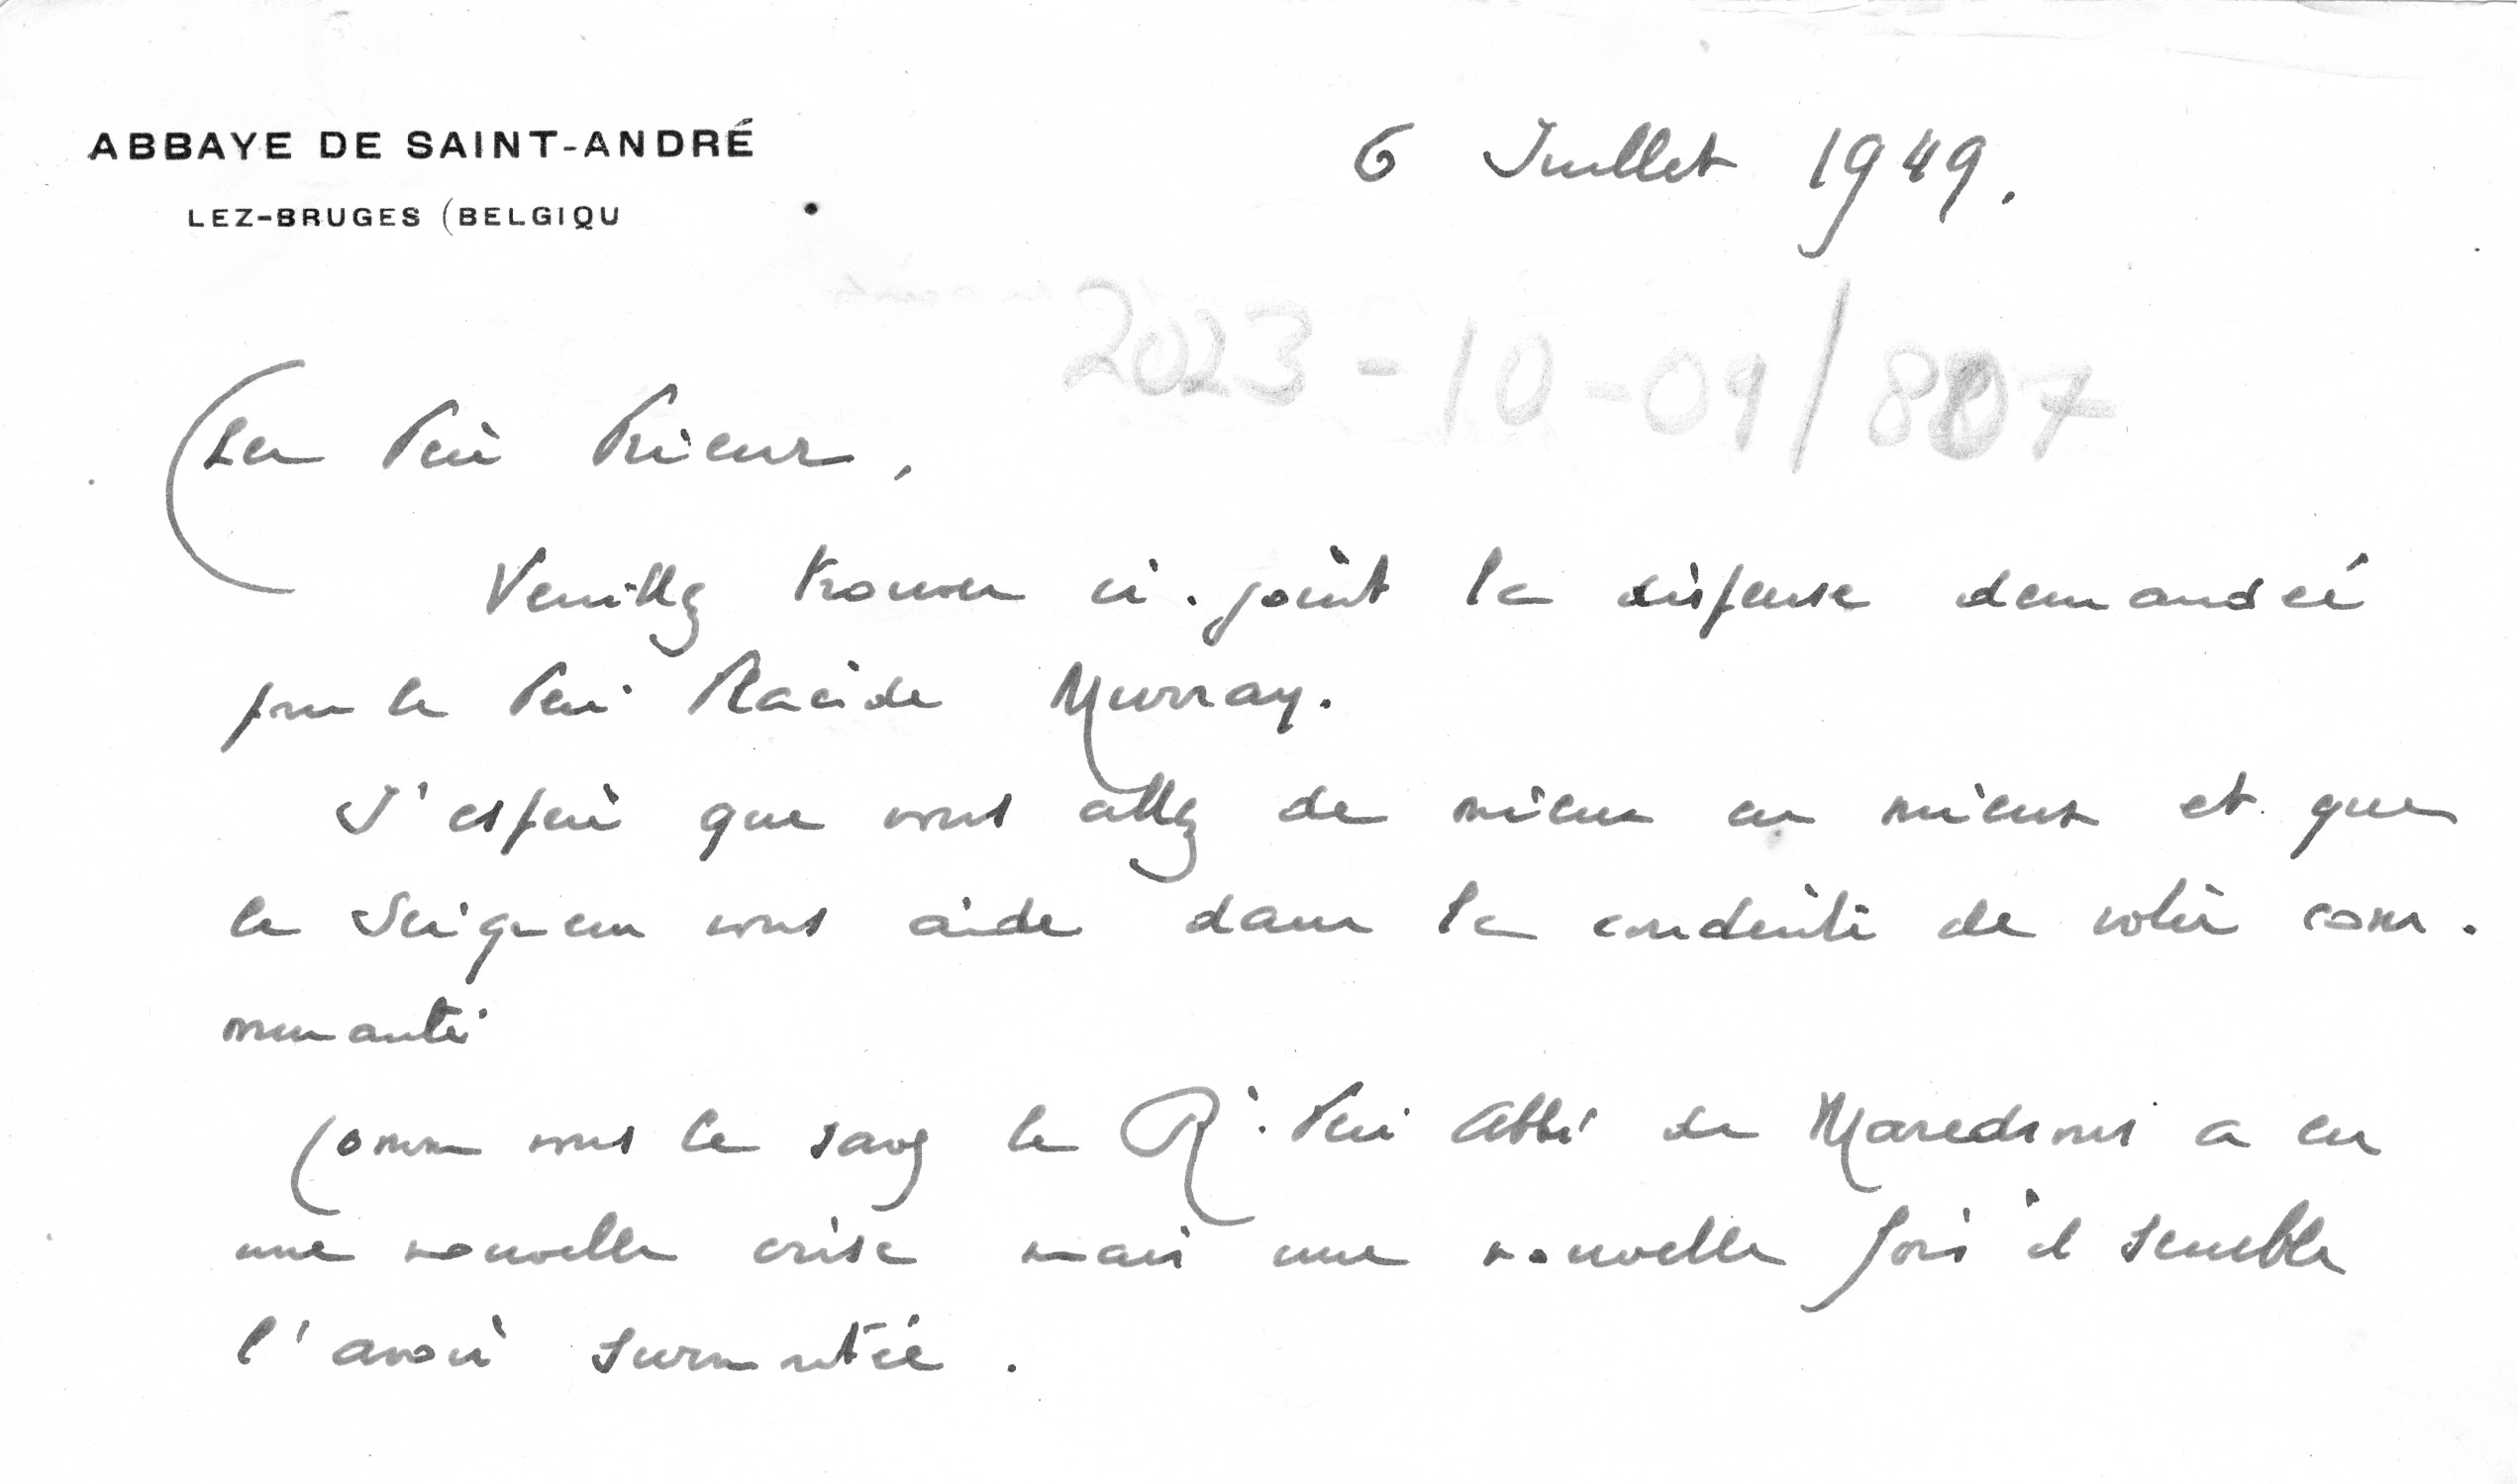 ABBAYE DE SAINT-ANDRÉ
LEZ-BRUGES (BELGIQU
6 Juillet 1949.
2023-10-09/807
Père Prieur,
Veuillez trouver ci-joint la dispense demandée
pour le Père Placide Murray.
J'espère que vous allez de mieux en mieux et que
le Seigneur vous aide dans la conduite de votre com-
munauté
Comme vous le savez le R. Père Abbé de Maredsous a eu
une nouvelle crise mais une nouvelle fois il semble
l'avoir surmontée.